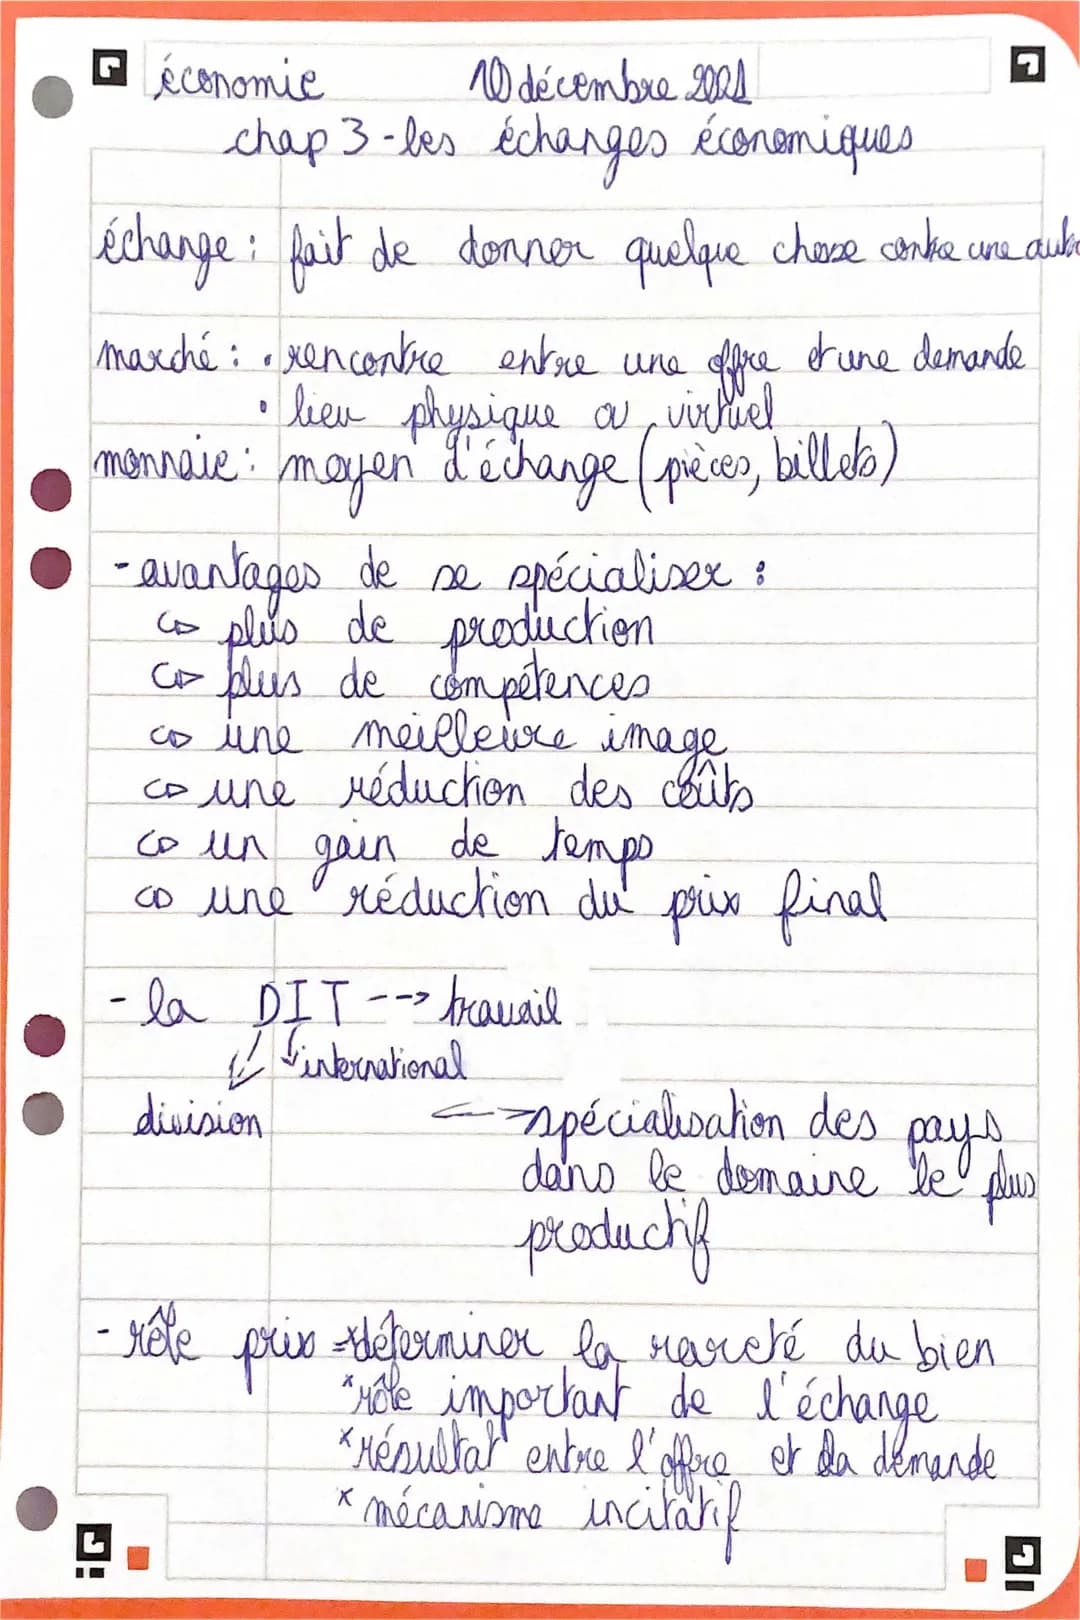 économie 10 décembre 2021
chap 3 - les échanges économiques
échange : fait de donner quelque chose contre une autre
marché : • rencontre entre une offre et une demande
• lieu physique ou virtuel
monnaie : moyen d'échange (pièces, billets)
- avantages de se spécialiser :
↪ plus de production
↪ plus de compétences
↪ une meilleure image
↪ une réduction des coûts
↪ un gain de temps
↪ une réduction du prix final
- la DIT --> travail
international
division
<-> spécialisation des pays
dans le domaine le plus
productif
- rôle prix * déterminer la rareté du bien
* rôle important de l'échange
* résultat entre l'offre et la demande
* mécanisme incitatif